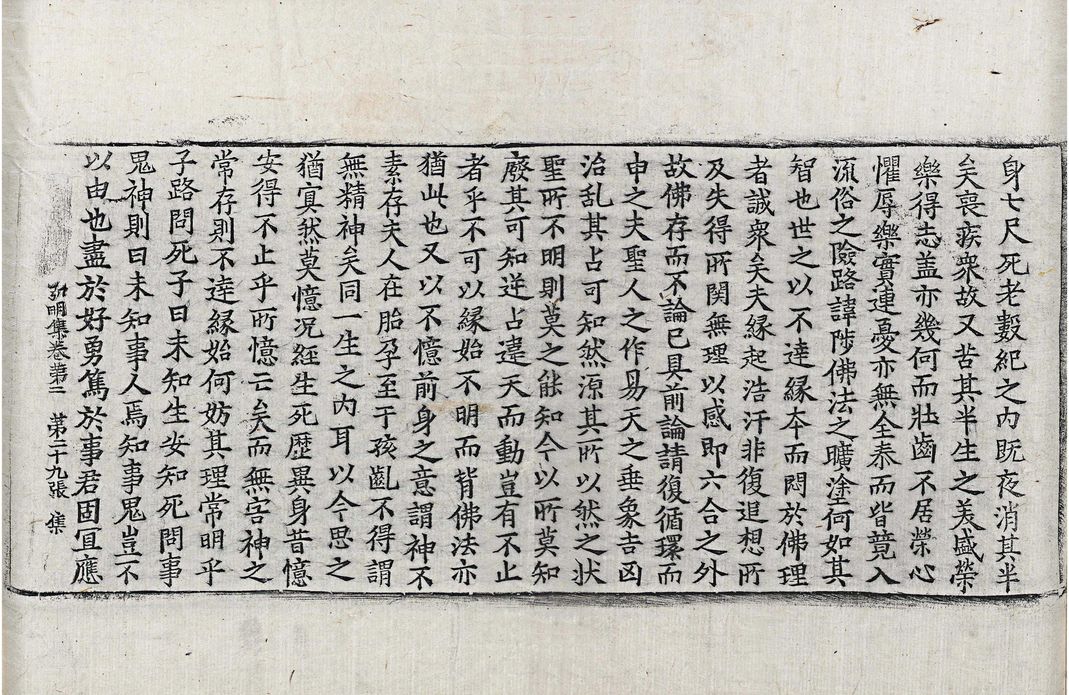 身七尺死老數紀之内既夜消其半
矣喪疾衆故又苦其半生之美盛榮
樂得志盖亦幾何而壯齒不居榮心
懼辱樂實連憂亦無全泰而皆競入
流俗之險路諱陟佛法之曠塗何如其
智也世之以不達緣本而悶於佛理
者誠衆矣夫緣起浩汗非復追想所
及失得所関無理以感即六合之外
故佛存而不論已具前論請復循環而
申之夫聖人之作易天之垂象吉凶
治乱其占可知然源其所以然之狀
聖所不明則莫之能知今以所莫知
廢其可知逆占違天而動豈有不止
者乎不可以緣始不明而背佛法亦
猶此也又以不憶前身之意謂神不
素存夫人在胎孕至于孩齓不得謂
無精神矣同一生之内耳以今思之
猶㝠然莫憶况經生死歷異身昔憶
安得不止乎所憶亡矣而無害神之
常存則不達緣始何妨其理常明乎
子路問死子曰未知生安知死問事
鬼神則曰未知事人焉知事鬼豈不
以由也盡於好勇篤於事君固冝應
弘明集卷第二 第二十九張 集